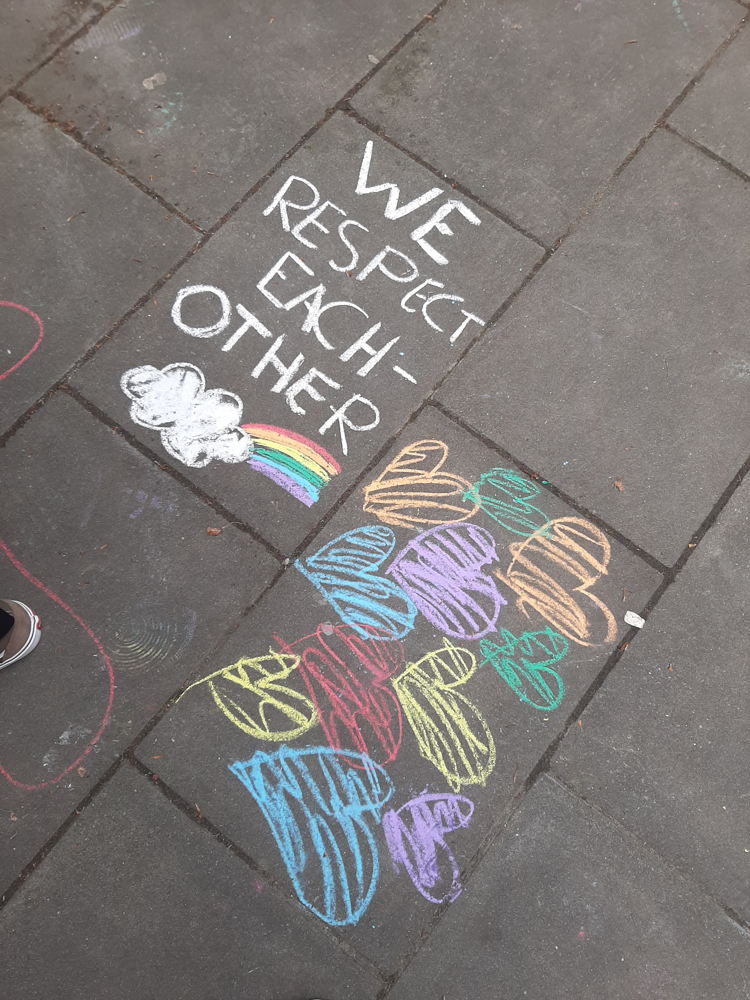 WE
RESPECT
EACH-
OTHER